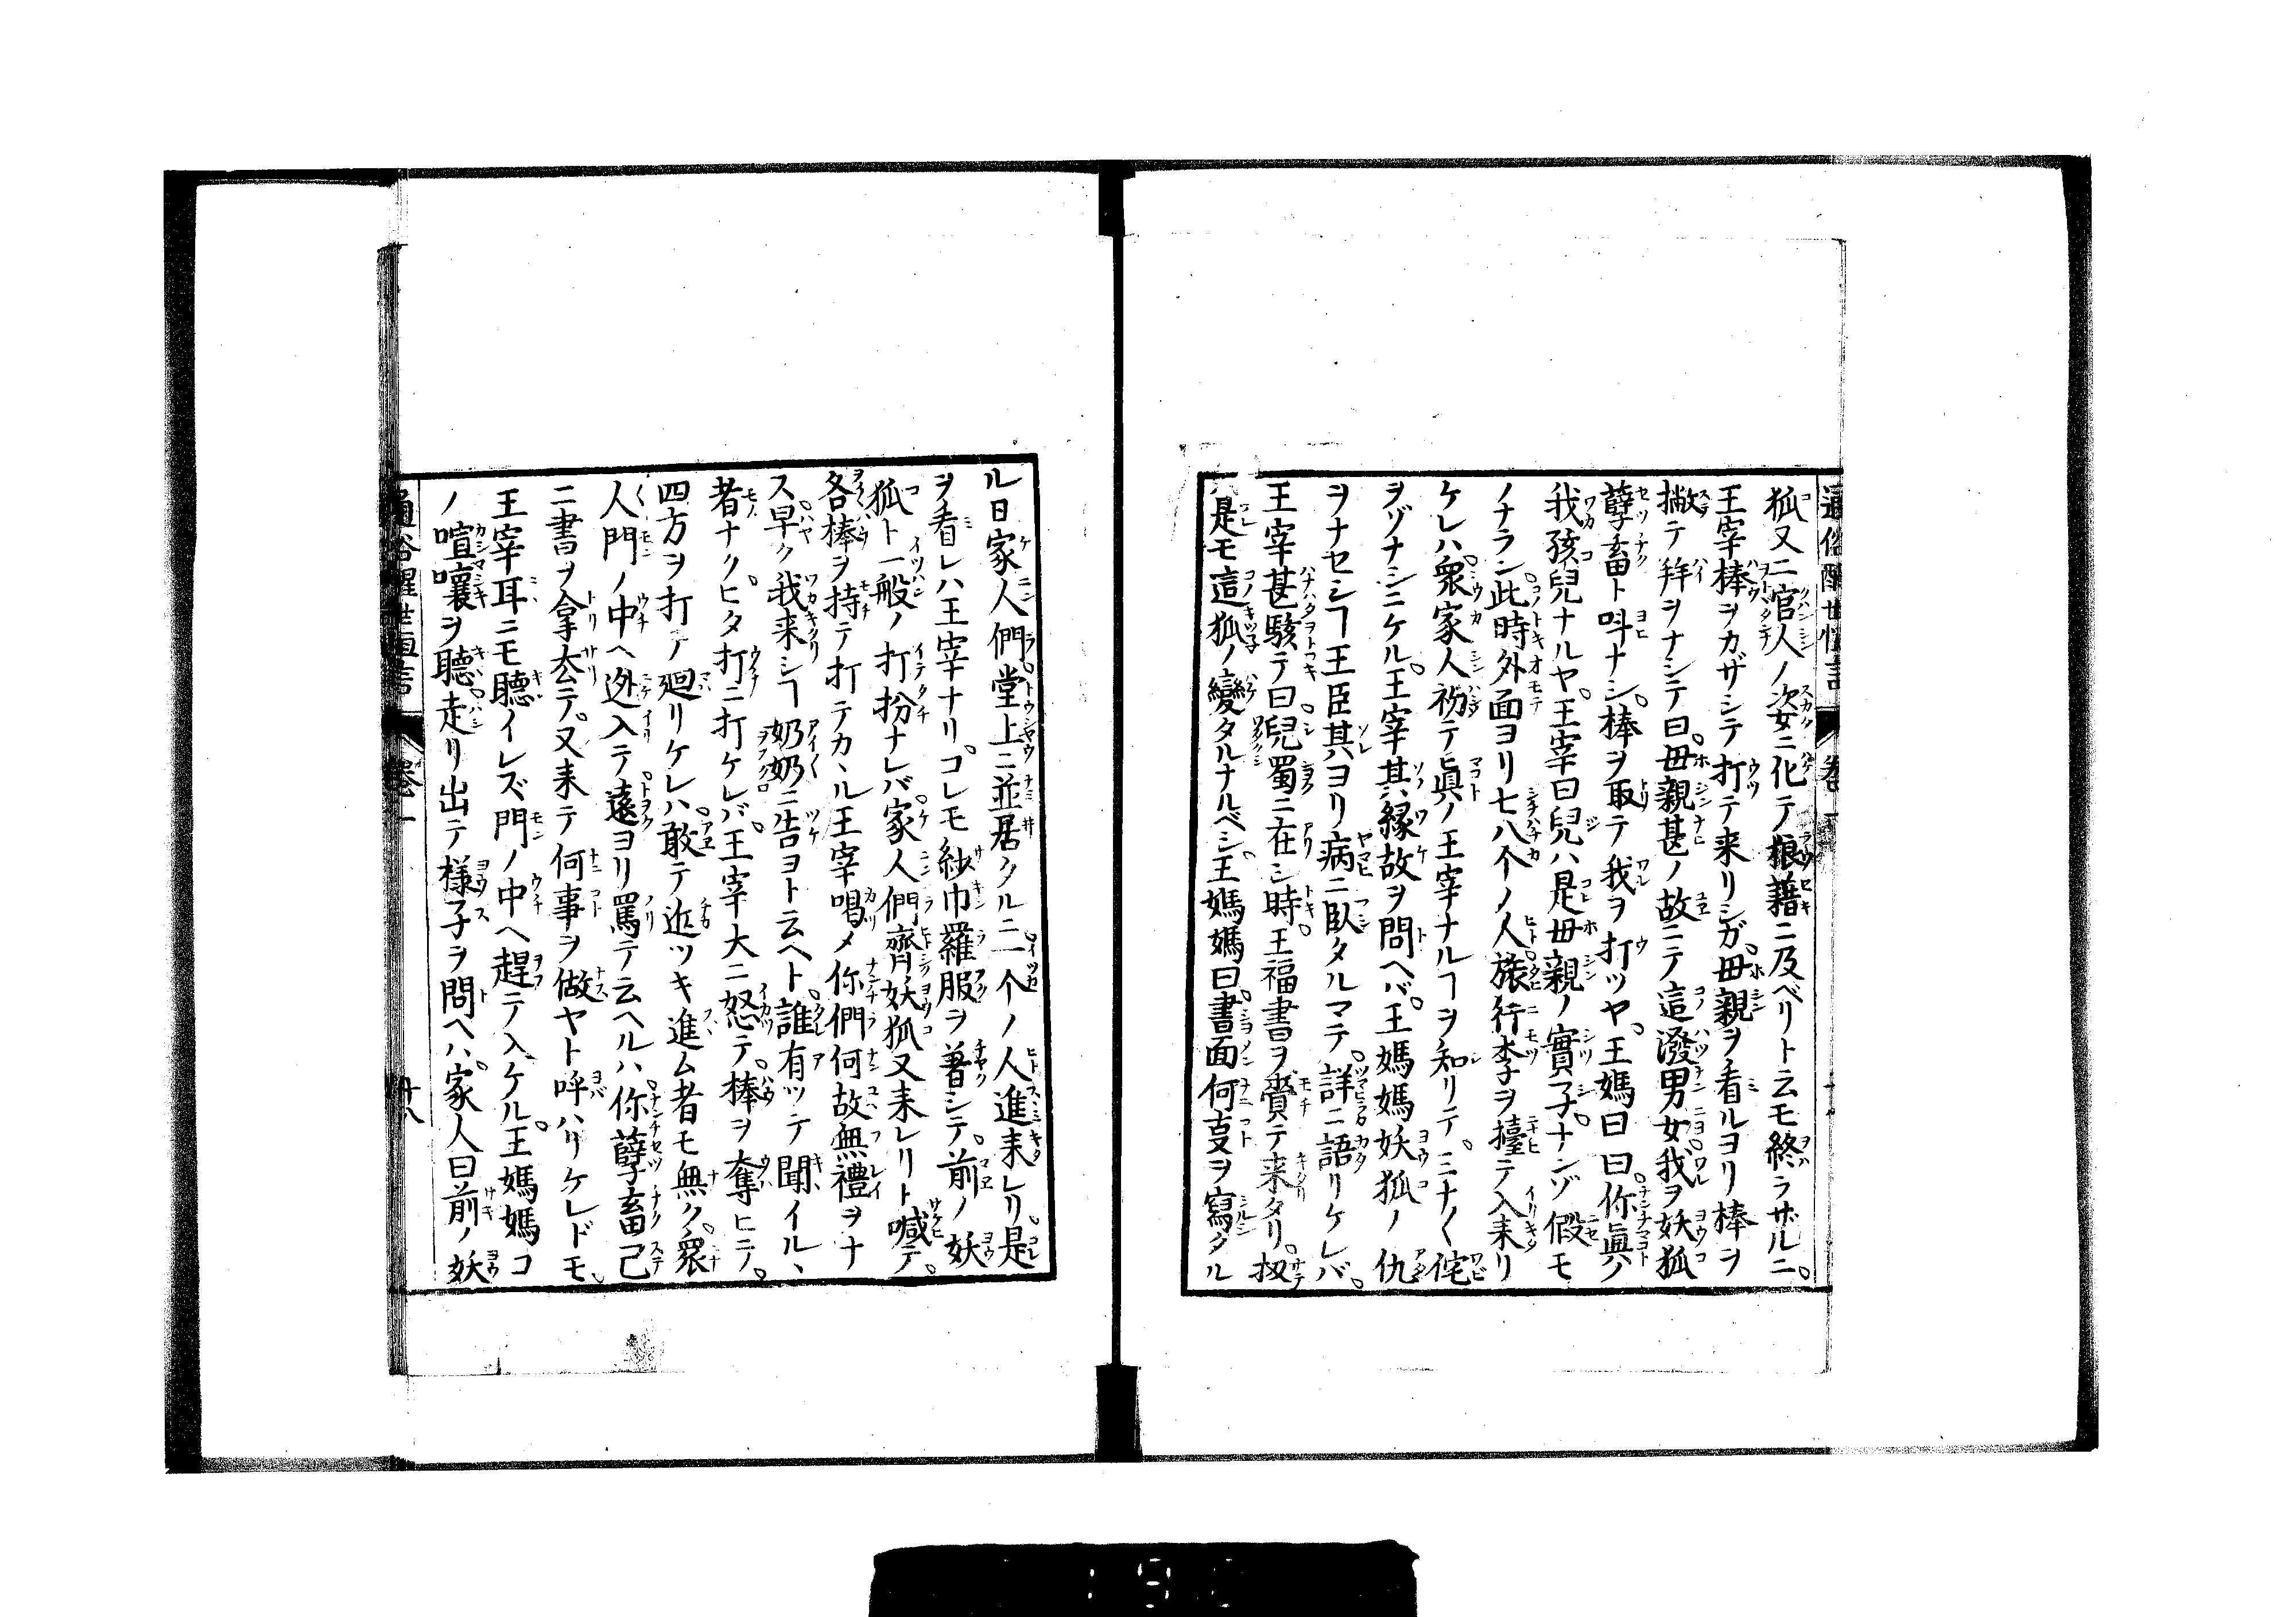 狐又二官人ノ姿ニ化テ狼藉ニ及ベリト云モ終ラザルニ。
王宰棒ヲカザシテ打テ来リシガ。母親ヲ看ルヨリ棒ヲ
撇テ拜ヲナシテ曰。母親甚ノ故ニテ這潑男女我ヲ妖狐
孽畜ト呌ナシ。棒ヲ取テ我ヲ打ツヤ。王媽曰曰。你眞ノ
我孩兒ナルヤ。王宰曰兒ハ是母親ノ實子。ナンゾ假モ
ノナラン。此時外面ヨリ七八个ノ人旅行李ヲ擡テ入来リ
ケレハ。衆家人初テ眞ノ王宰ナルヿヲ知リテ。ミナ〱侘
ヲゾナシニケル。王宰其縁故ヲ問ヘバ。王媽媽妖狐ノ仇
ヲナセシヿ王臣其ヨリ病ニ臥タルマテ。詳ニ語リケレバ。
王宰甚駭テ曰。兒蜀ニ在シ時。王福書ヲ賫テ来タリ。扨
ハ是モ這狐ノ變タルナルベシ。王媽媽曰。書面何亊ヲ寫タル
通俗醒世恒言 卷一
ル日家人們堂上ニ並居タルニ。一个ノ人進来レリ。是
ヲ看レハ王宰ナリ。コレモ紗巾羅服ヲ著シテ。前ノ妖
狐ト一般ノ打扮ナレバ。家人們齊妖狐又来レリト喊テ。
各棒ヲ持テ打テカヽル王宰喝メ你們何故無禮ヲナ
ス。早ク我来シヿ奶奶ニ告ヨト云ヘト。誰有ツテ聞イルヽ
者ナク。ヒタ打ニ打ケレバ。王宰大ニ怒テ。棒ヲ奪ヒテ。
四方ヲ打テ廻リケレハ。敢テ近ツキ進ム者モ無ク。衆
人門ノ中ヘ迯入テ。遠ヨリ罵テ云ヘルハ。你孽畜己
ニ書ヲ拿去テ。又来テ何事ヲ做ヤト呼ハリケレドモ。
王宰耳ニモ聽イレズ門ノ中ヘ趕テ入ケル。王媽媽コ
ノ喧嚷ヲ聽。走リ出テ様子ヲ問ヘハ。家人曰前ノ妖
通俗醒世恒言 卷一 十八